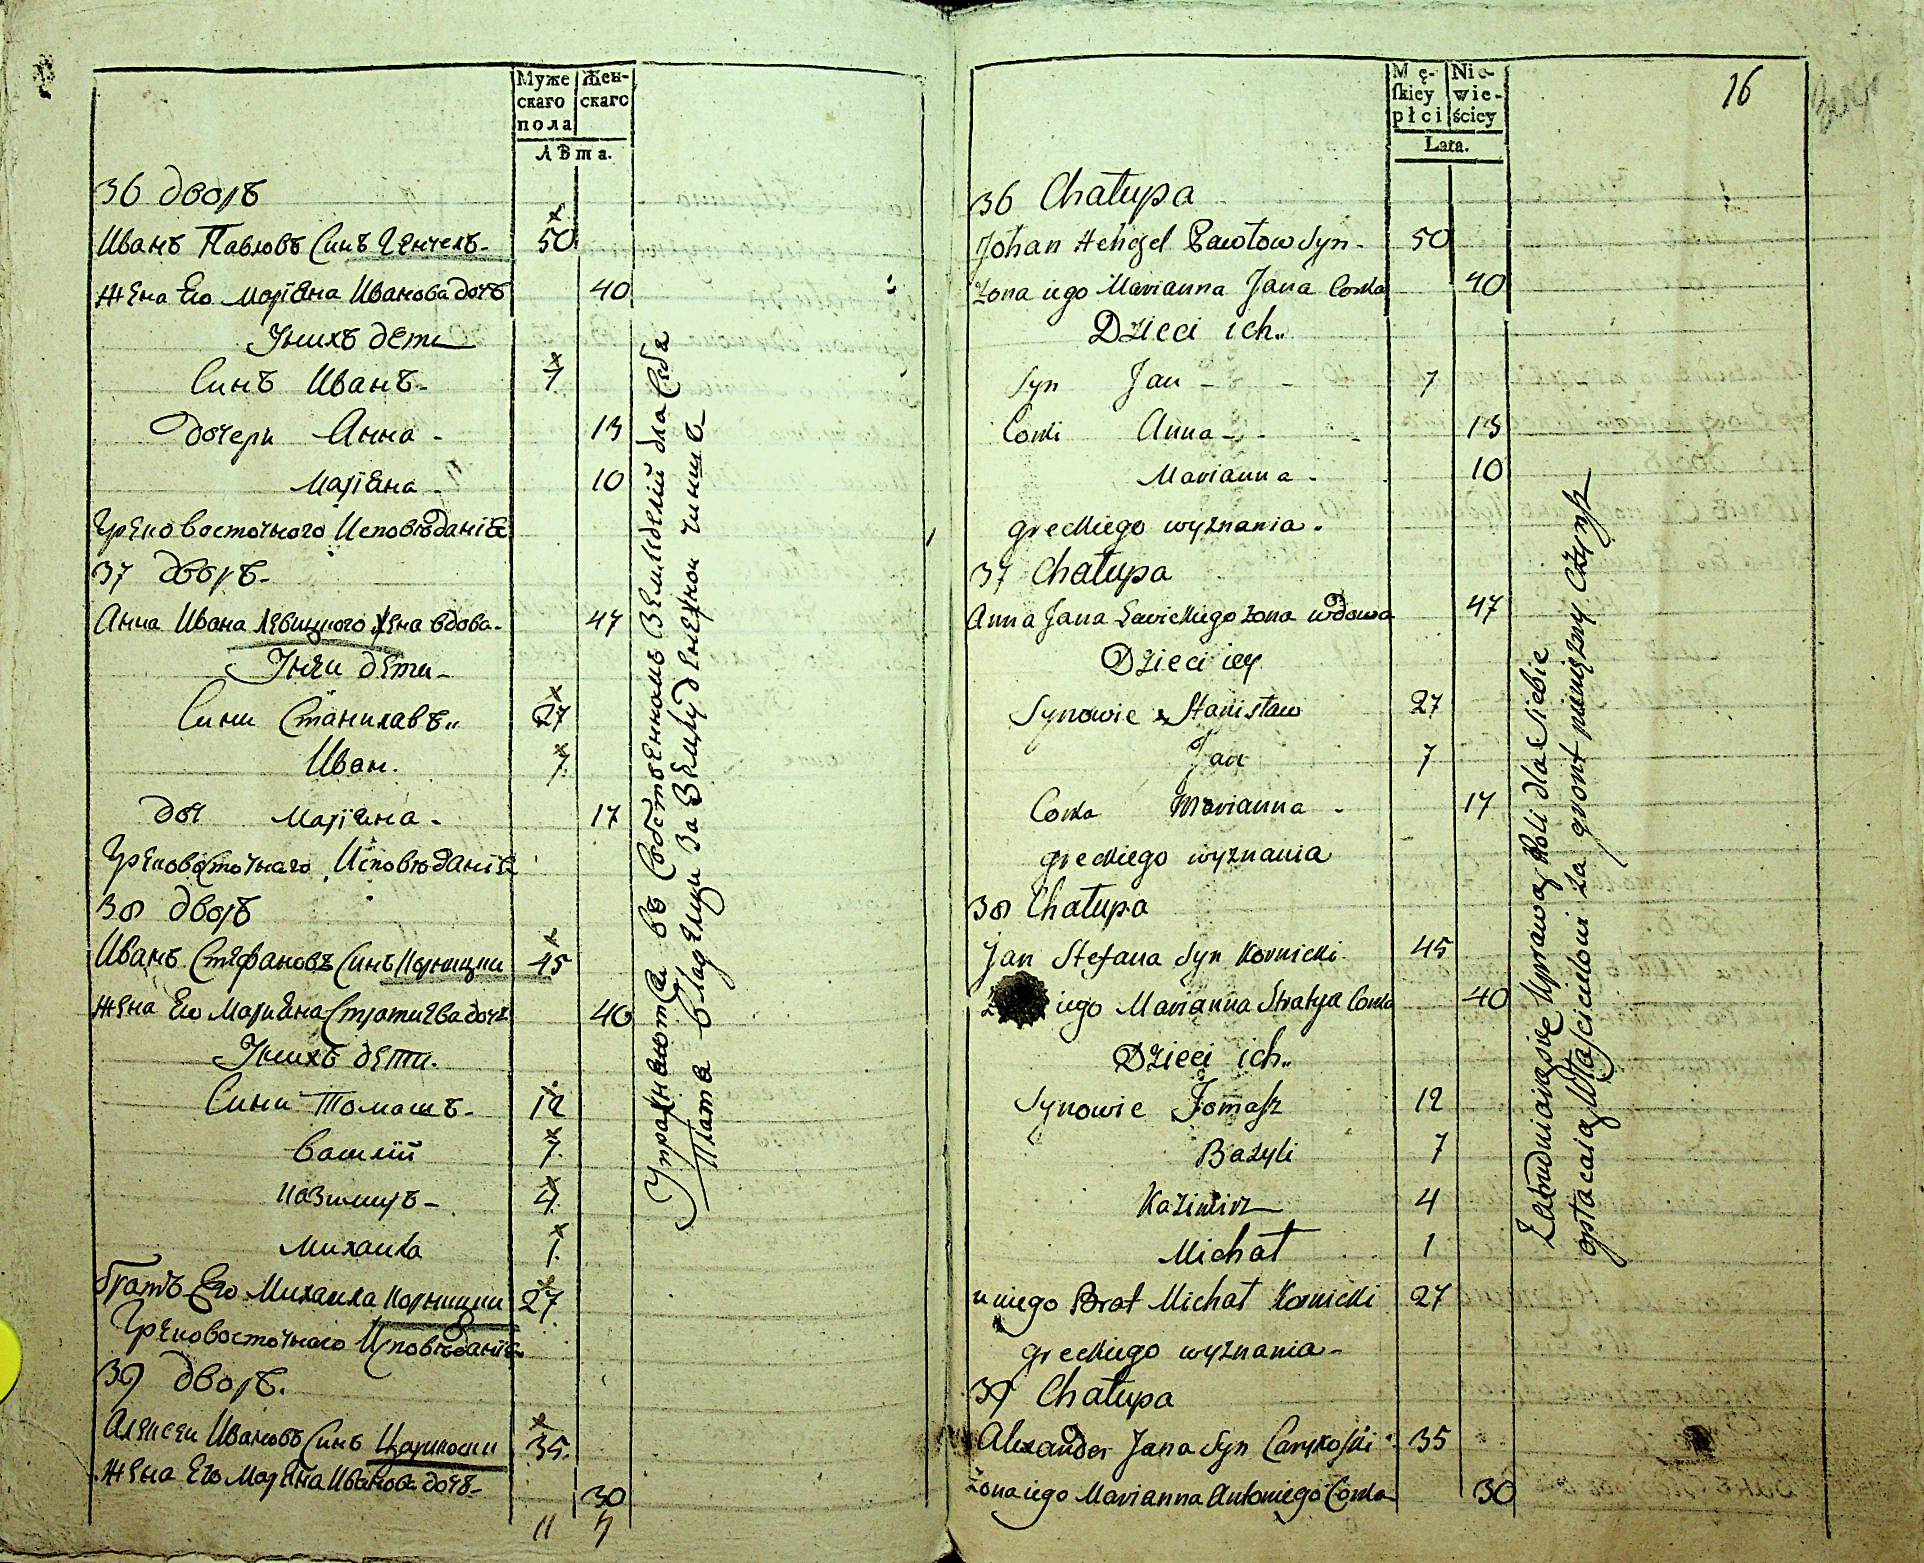 Муже
скаго
пола
Жен-
скаго
лѣта.
36 дворъ
Иванъ Павловъ Синъ Генчель - 50
Жена Его Маріѣна Иванова дочъ 40
Унихъ дети
Синъ Иванъ - 7
Дочери Анна - 13
Маріѣна - 10
Греко восточного Исповѣданіѣ
37 дворъ -
Анна Ивана Левицкого жена вдова - 47
Унеи дети -
Сини Станилавъ 27
Иван. 7
доч Маріѣна - 17
Грековосточнаго Исповѣданіѣ
38 дворъ
Иванъ Стефановъ Синъ Корницки 45
Жена Его Маріѣна дочъ 40
Унихъ дети.
Сини Томашъ - 12
Василій 7
Казимиръ - 4
Михаила 1
братъ Его Михаила Корницки 27
Грековосточного Исповѣданіѣ
39 дворъ.
Алексеи Ивановъ Синъ 35
Жена Его Маріѣна Иванова дочъ - 30
11 7
Упражнаютса въ Собственномъ Земледелій для Себа
Плата владелци За Землу денежнои чиншъ
16
Mę-
skiey
płci
Nie-
wie-
ściey
Lata.
36 Chałupa
Johan Hengel Pawłow Syn - 50
żona iego Marianna Jana Corka 40
Dzieci ich
Syn Jan - 7
Corki Anna - 13
Marianna - 10
greckiego wyznania.
37 Chałupa
Anna Jana Lavickiego żona wdowa 47
Dzieci iey
Synowie Stanisław 27
Jan 7
Corka Marianna - 17
greckiego wyznania
38 Chałupa
Jan Stefana Syn Kornicki 45
iego Marianna Corka 40
Dzieci ich
Synowie Tomasz 12
Bazyli 7
Kazimirz 4
Michał 1
u niego Brat Michał Kornicki 27
greckiego wyznania -
39 Chałupa
Alexander Jana Syn 35
żona iego Marianna Antoniego Corka 30
Zatrudniaią się Uprawą Roli dla Siebie
opłacaią Właścicielowi za gront pieniężny Czynsz